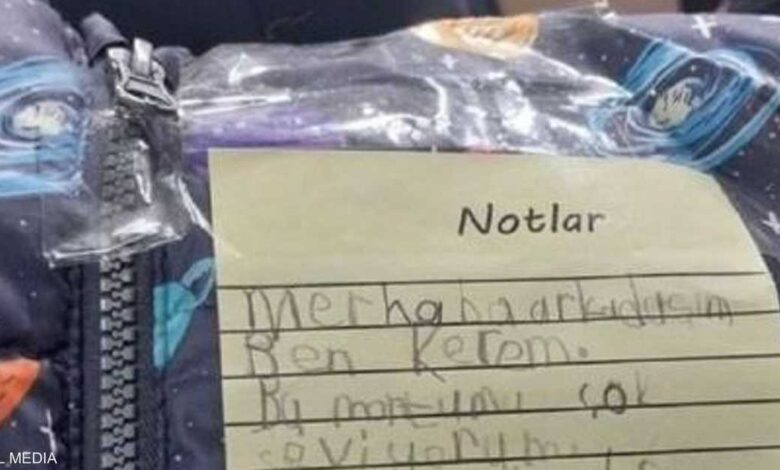 Notlar
Merhaba arkadaşım
Ben Kerem.
Bu montumu çok
seviyorum
L MEDIA